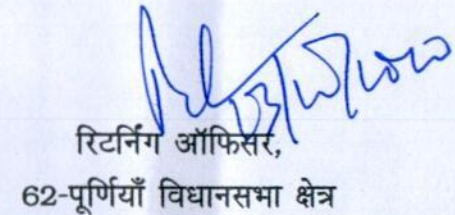 रिटर्निंग ऑफिसर,
62-पूर्णियाँ विधानसभा क्षेत्र